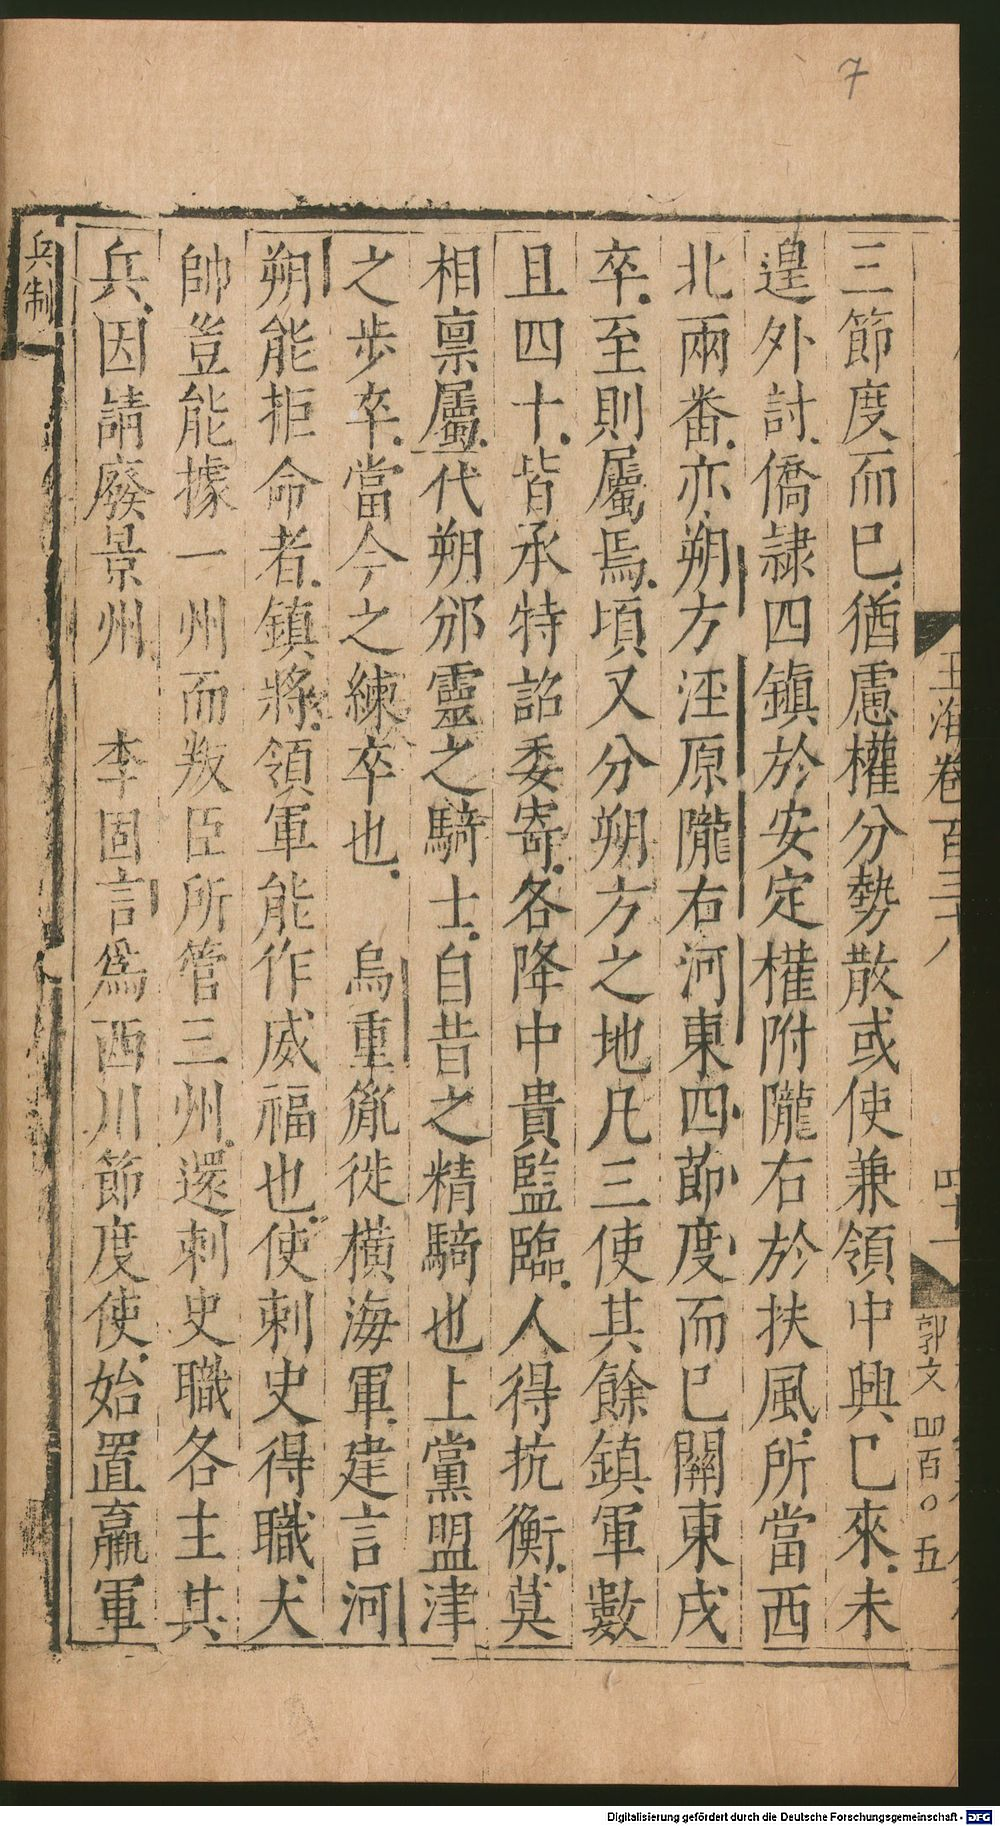 7
玉海卷百三十八
四十一
郭文 四百〇五
三節度而巳猶慮權分勢散或使兼領中興巳來未
遑外討僑隸四鎮於安定權附隴右於扶風所當西
北兩番亦朔方涇原隴右河東四節度而巳關東戍
卒至則屬焉頃又分朔方之地凡三使其餘鎮軍數
且四十皆承特詔委寄各降中貴監臨人得抗衡莫
相禀屬代朔邠靈之騎士自昔之精騎也上黨盟津
之步卒當今之練卒也 烏重胤徙横海軍建言河
朔能拒命者鎮將領軍能作威福也使刺史得職大
帥豈能據一州而叛臣所管三州還刺史職各主其
兵因請廢景州 李固言爲西川節度使始置羸軍
兵制
Digitalisierung gefördert durch die Deutsche Forschungsgemeinschaft - DFG